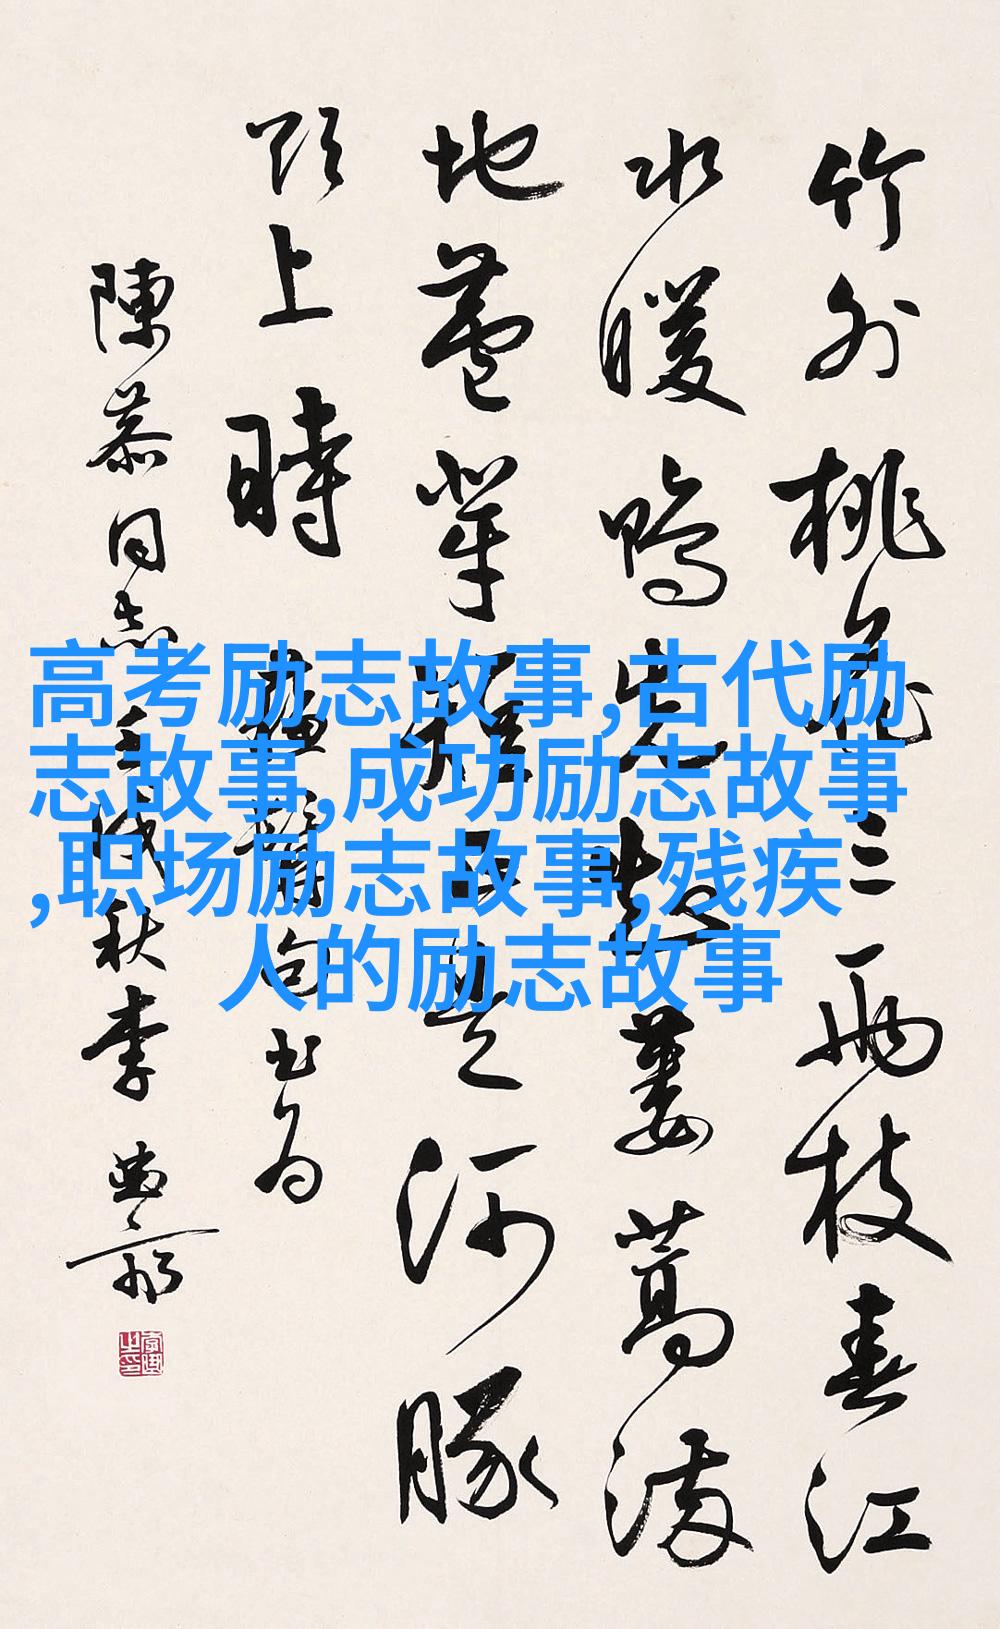 竹外桃花三两枝春江
水暖鴨先知蔞蒿滿
地蘆芽短正是河豚
欲上時 句书为
陳恭同志 秋李
高考励志故事,古代励
志故事,成功励志故事
,职场励志故事,残疾
人的励志故事